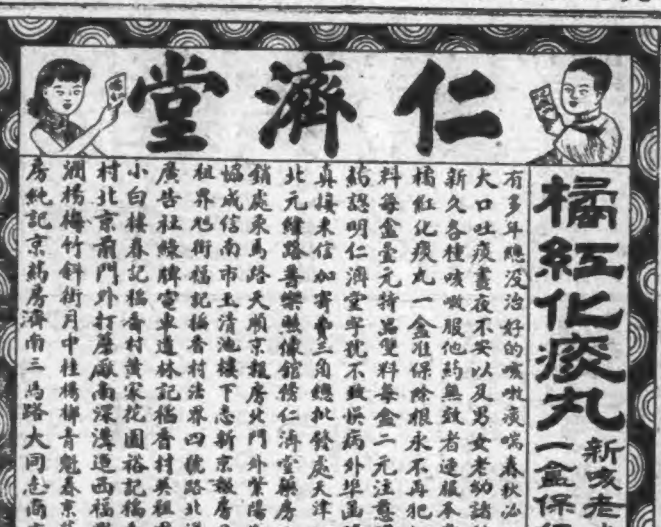 仁濟堂
橘紅化痰丸
新咳老
一盒保
有多年總没治好的咳嗽痰喘春秋必
大口吐痰晝夜不安以及男女老幼諸
新久各種咳嗽服他药無效者速服本
橘紅化痰丸一盒准保除根永不再犯
料每盒壹元特品雙料每盒二元注意
药認明仁濟堂字號不致悞病外埠函
真接来信如寄費三角總批發處天津
北元緯路善樂照像館傍仁濟堂藥房
銷處東馬路天順京報房北門外紫陽
協成信南市玉清池樓下志新京報房
租界旭街福記稻香村法界四號路北
廣告社綠牌電車道林記稻香村英租
小白樓春記稻香村黃家花園裕記稻
村北京前門外打磨廠南深溝迺西福
潤楊梅竹斜街月中桂楊柳青魁春京
房純記京药房濟南三馬路大同志商